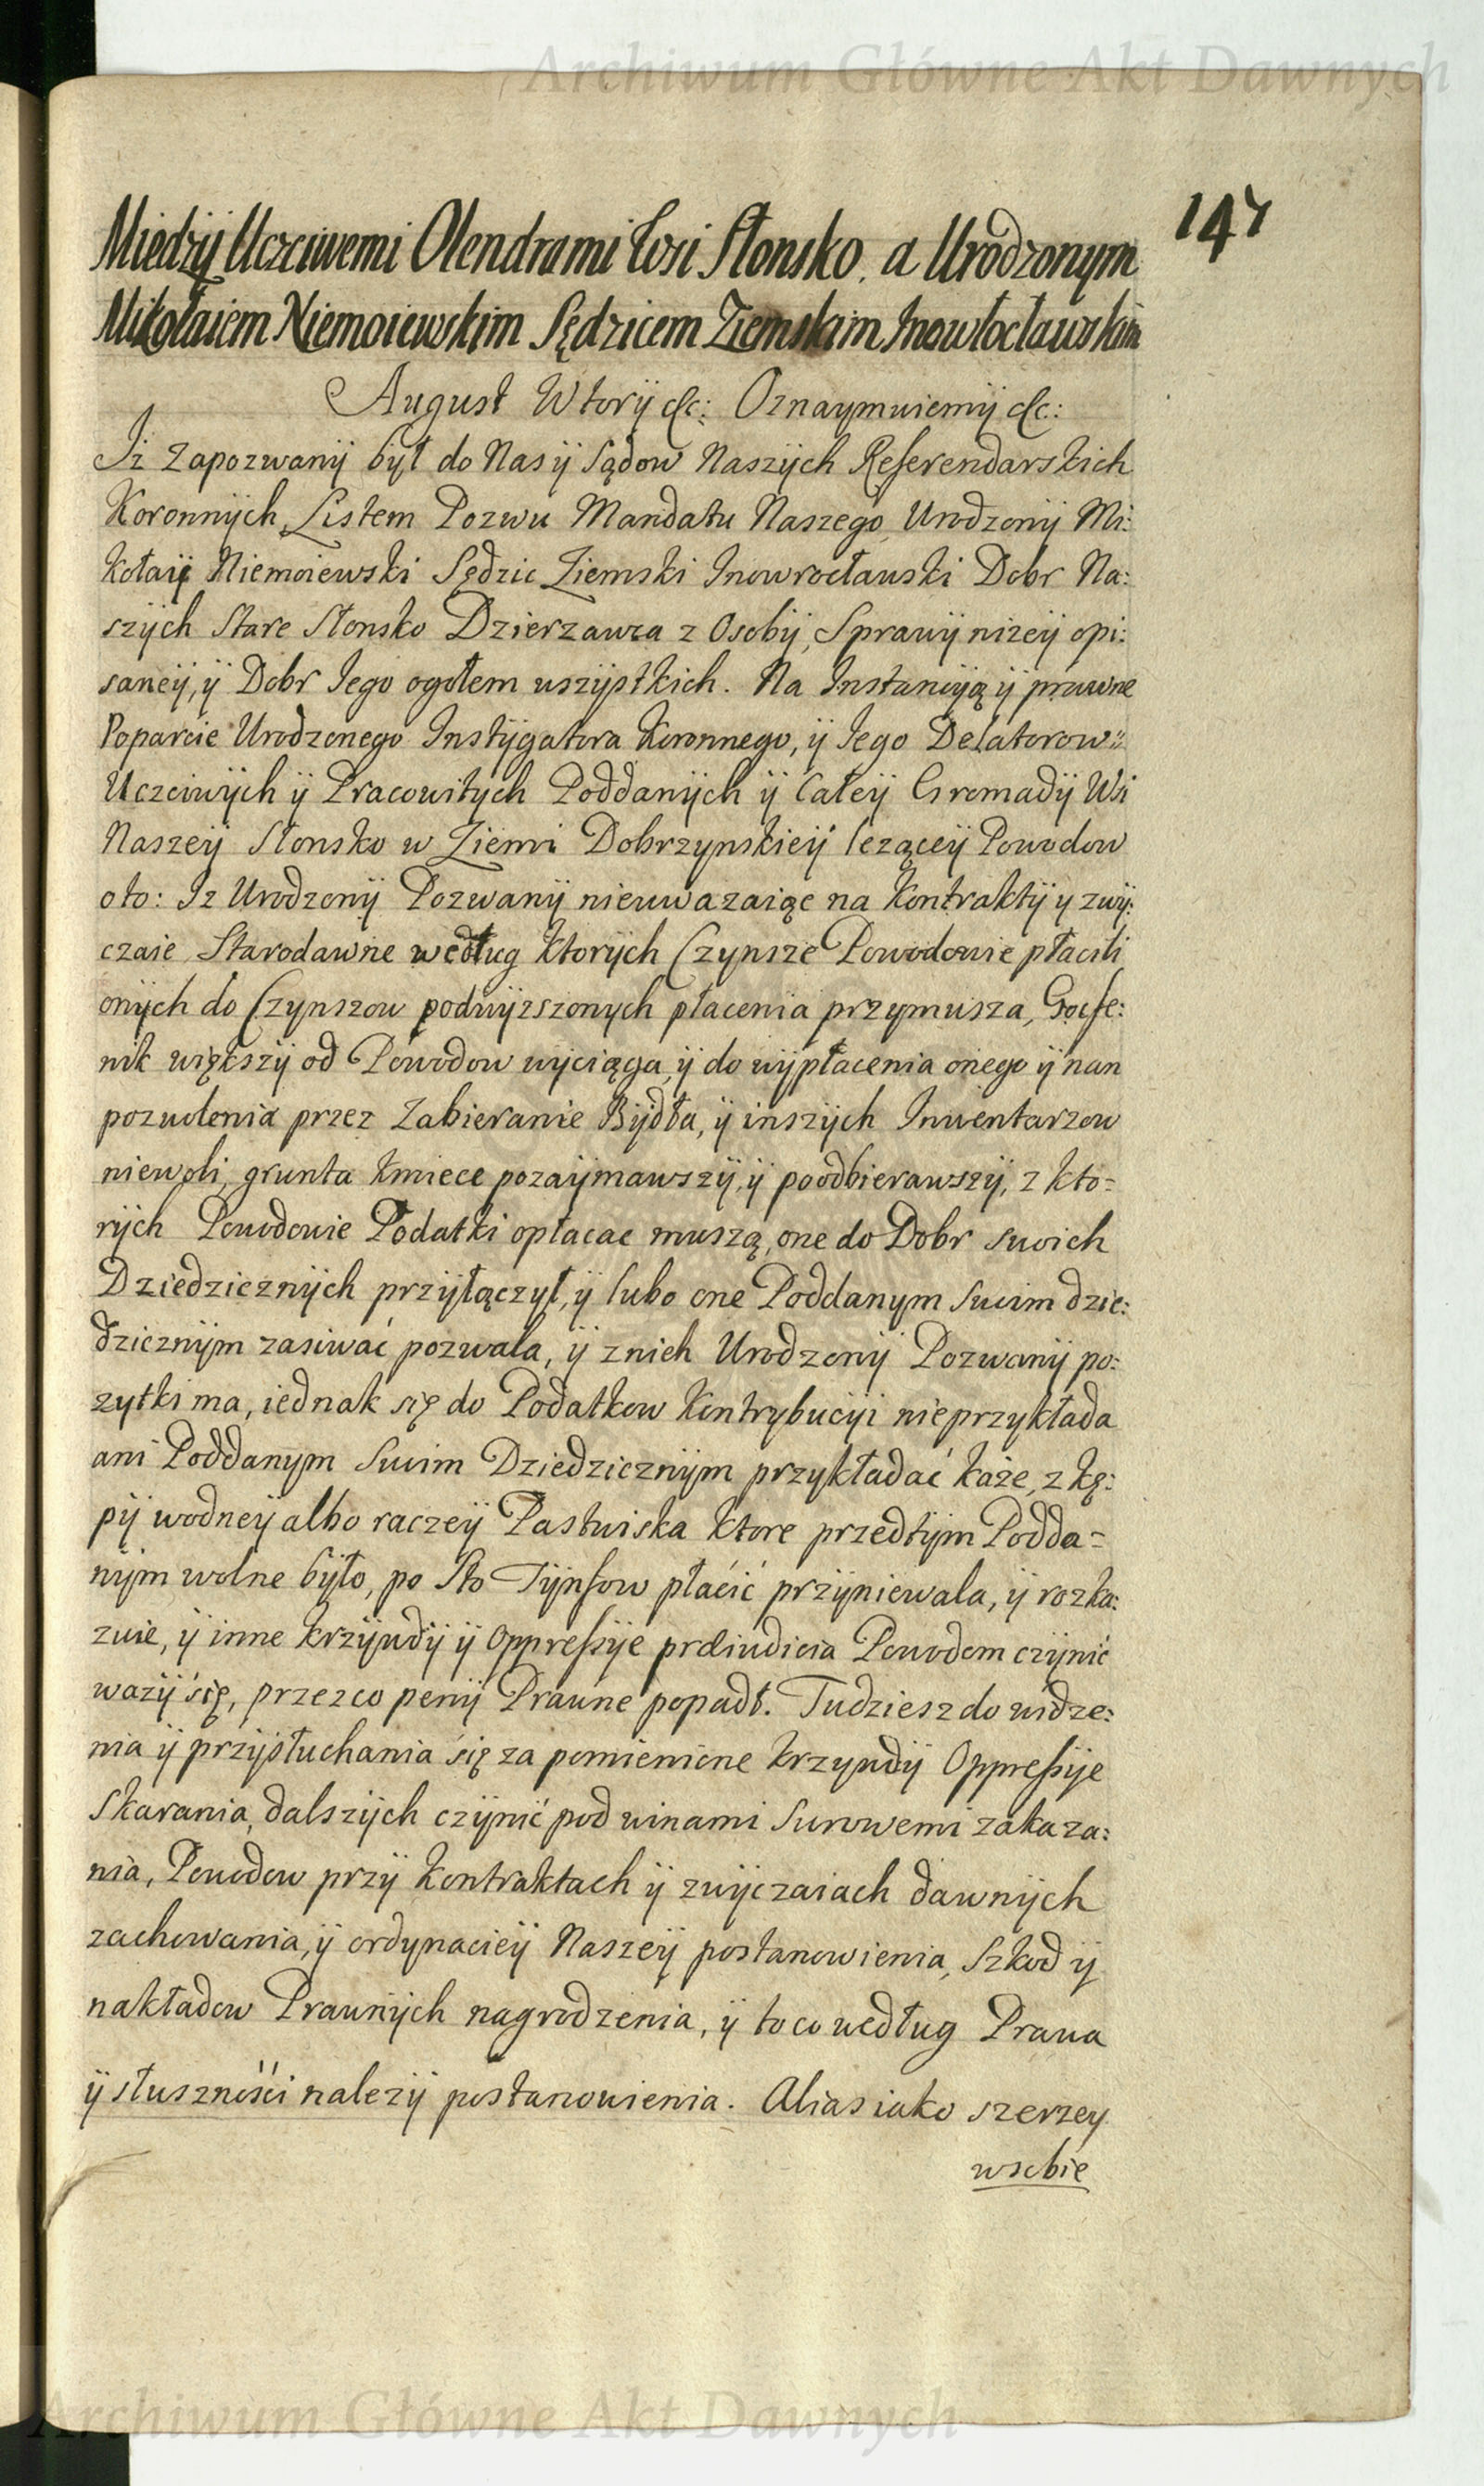 Archiwum Główne Akt Dawnych
147
Miedzÿ Uczciwemi Olendrami Wsi Słonsko. a Urodzonym
Mikołaiem Niemoiewskim Sędzicem Ziemskim Inowłocławskim
August Wtorÿ &c: Oznaymuiemÿ &c:
Iż Zapozwanÿ był do Nas ÿ Sądow Naszÿch Referendarskich
Koronnÿch, Listem Pozwu Mandatu Naszego, Urodzonÿ Mi:
kołaiÿ Niemoiewski Sędzic Ziemski Inowrocławski Dobr Na:
szÿch Stare Słonsko Dzierzawca z Osobÿ, Sprawÿ nizeÿ opi:
saneÿ, ÿ Dobr Iego ogołem wszÿstkich. Na Instancÿą ÿ prawne
Poparcie Urodzonego Instÿgatora Koronnego, ÿ Iego Delatorow:
Uczciwÿch ÿ Pracowitÿch Poddanÿch ÿ Całeÿ Gromadÿ Wsi
Naszeÿ Słonsko w Ziemi Dobrzynskieÿ leząceÿ Powodow
oto: Iz Urodzonÿ Pozwanÿ nieuwazaiąc na Kontraktÿ y zwÿ:
czaie Starodawne według ktorÿch Czynsze Powodowie płacili
onÿch do Czynszow podwÿzszonych płacenia przymusza, Gocfe:
nik większÿ od Powodow wyciąga, ÿ do wÿpłacenia onego ÿ nan
pozwolenia przez Zabieranie Bÿdła, ÿ inszÿch Inwentarzow
niewoli, grunta kmiece pozaÿmawszÿ, ÿ poodbierawszÿ, z kto=
rÿch Powodowie Podatki opłacac muszą, one do Dobr swoich
Dziedzicznÿch przÿłączył, ÿ lubo one Poddanym Swim dzie:
dzicznÿm zasiwać pozwala, ÿ znich Urodzonÿ Pozwanÿ po:
zytki ma, iednak się do Podatkow Kontrybucÿi nieprzykłada
ani Poddanym Swim Dziedzicznÿm przykładać każe, z kę:
pÿ wodneÿ albo raczeÿ Pastwiska ktore przedtÿm Podda=
nÿm wolne bÿło, po Sto Tÿnfow płacić przÿniewala, ÿ rozka:
zuie, ÿ inne krzÿwdÿ ÿ Oppressÿe praeiudicia Powodom czÿnić
wazÿ się, przezco penÿ Prawne popadł. Tudziesz do widze:
nia ÿ przÿsłuchania się za pomienione krzywdÿ Oppressÿe
Skarania, dalszÿch czÿnić pod winami Surowemi zakaza:
nia, Powodow przÿ Kontraktach ÿ zwÿczaiach dawnÿch
zachowania, ÿ ordynacieÿ Naszeÿ postanowienia, Szkod ÿ
nakładow Prawnÿch nagrodzenia, ÿ to co według Prawa
ÿ słuszności nalezÿ postanowienia. Alias iako szerzey
wsobie
Archiwum Główne Akt Dawnych